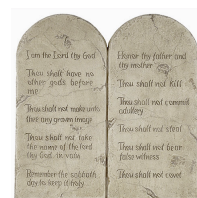 I am the Lord thy God
Thou shalt have no
other gods before
me
Thou shalt not make unto
thee any graven image
Thou shalt not take
the name of the lord
thy God in vain
Remember the sabbath
day to keep it holy
Honor thy father and
thy mother
Thou shalt not kill
Thou shalt not commit
adultery
Thou shalt not steal
Thou shalt not bear
false witness
Thou shalt not covet